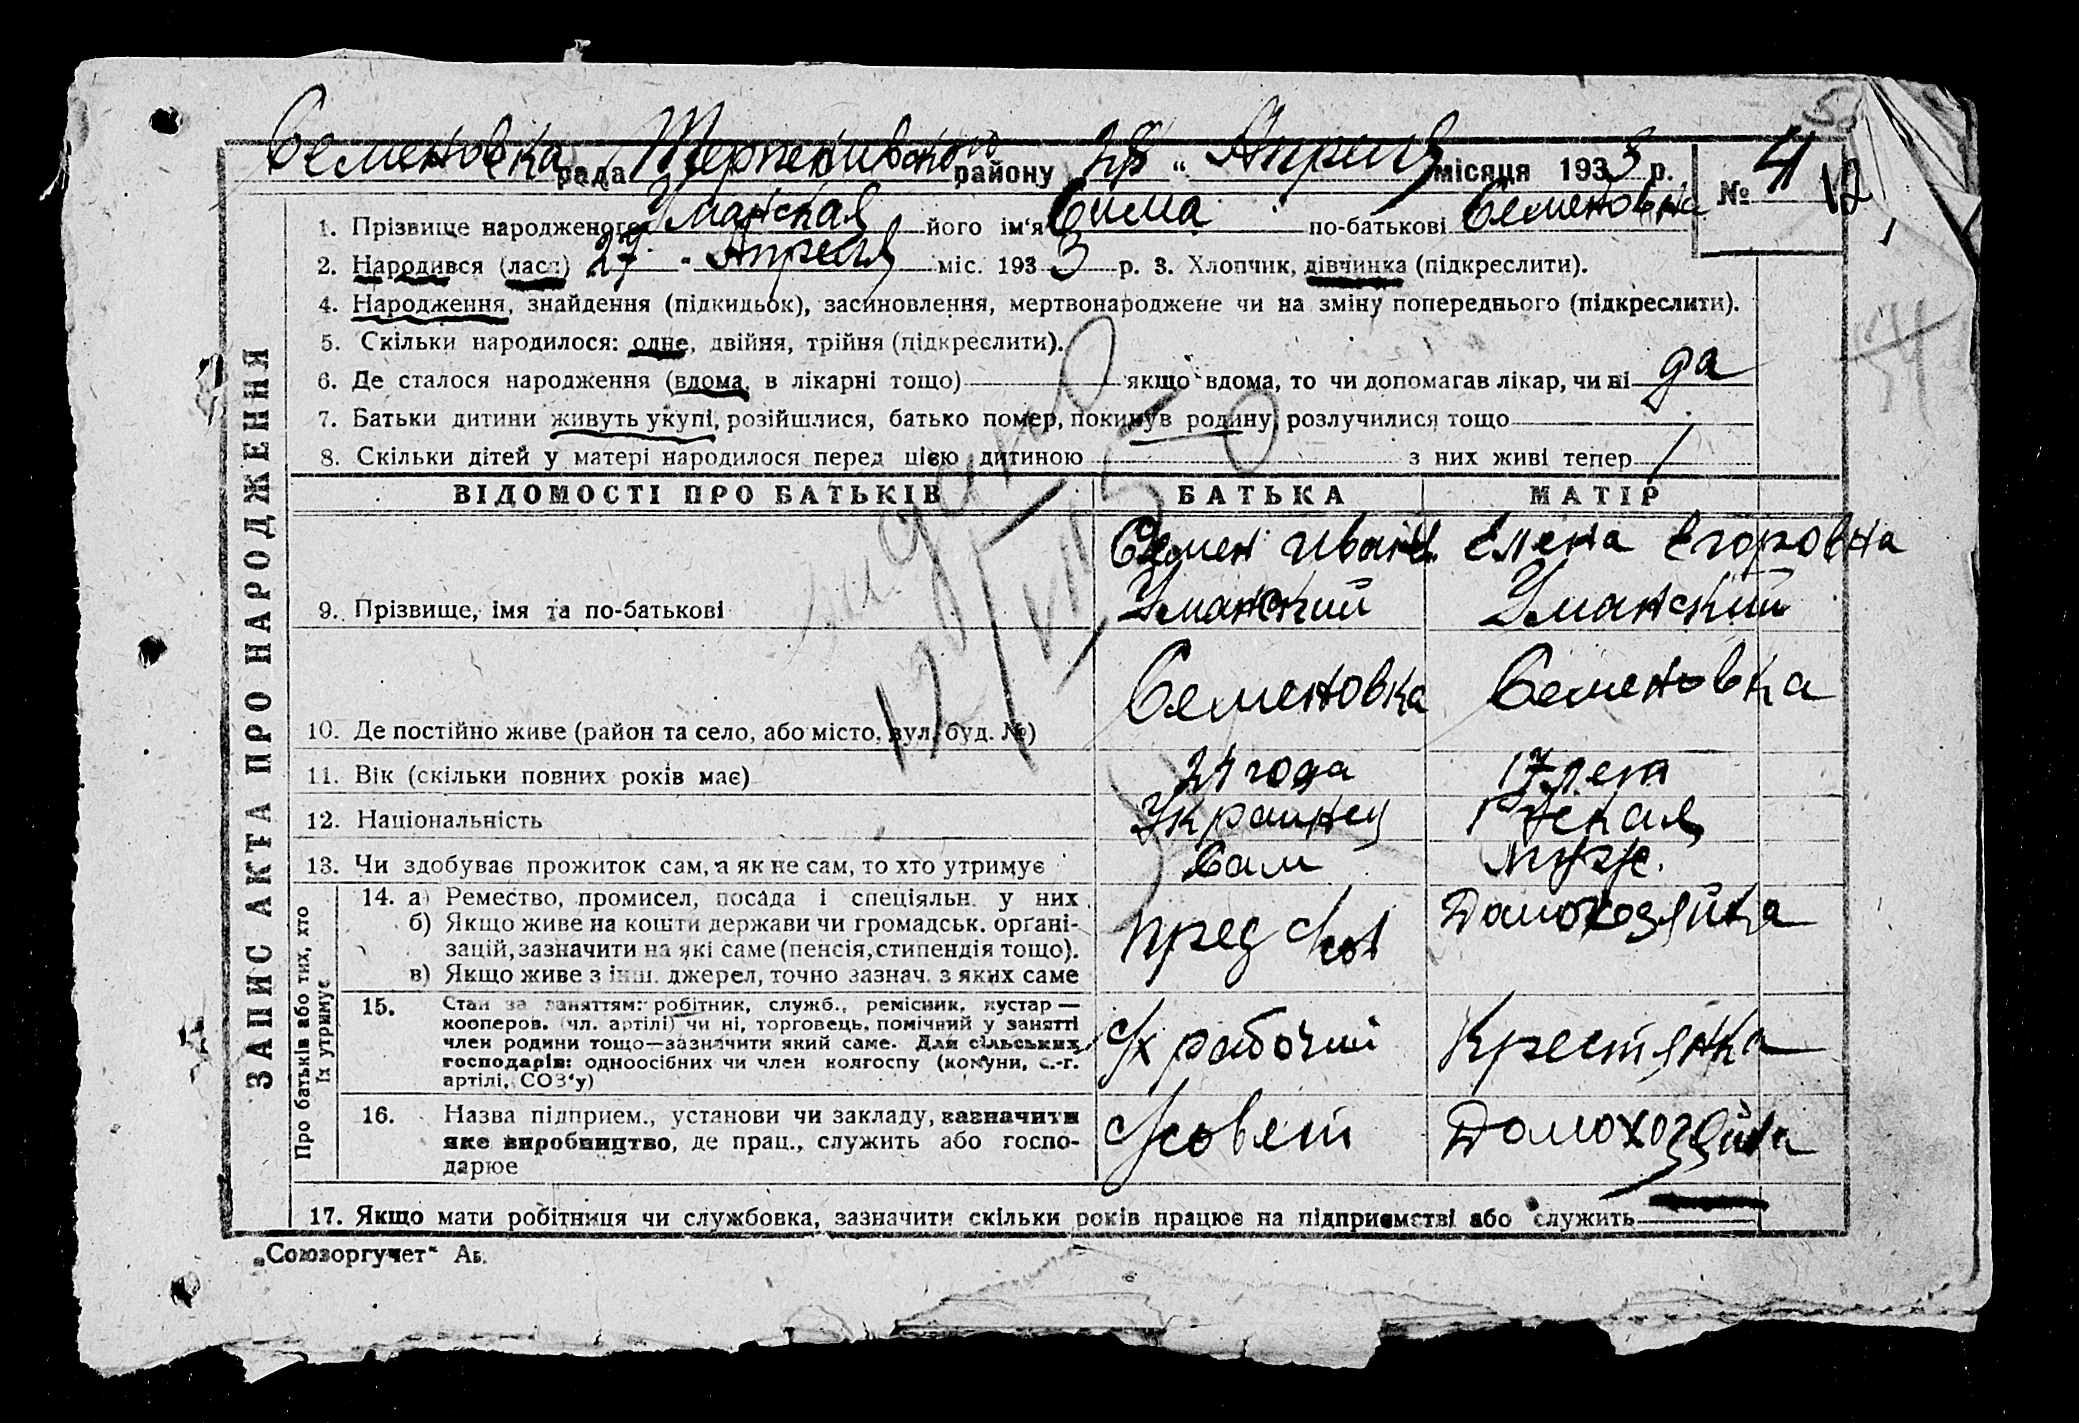 Семеновка рада Терпенивского району 28 " Апреля місяця 1933 р. № 41
1. Прізвище народженого Уманская його ім'я Сима по-батькові Семеновна
2. Народився (лася) 27 - Апреля міс. 1933 р. 3. Хлопчик, дівчинка (підкреслити).
4. Народження, знайдення (підкидьок), засиновлення, мертвонароджене чи на зміну попереднього (підкреслити).
5. Скільки народилося: одне, двійня, трійня (підкреслити).
6. Де сталося народження (вдома, в лікарні тощо) якщо вдома, то чи допомагав лікар, чи ні да
7. Батьки дитини живуть укупі, розійшлися, батько помер, покинув родину, розлучилися тощо
8. Скільки дітей у матері народилося перед цією дитиною з них живі тепер /
ЗАПИС АКТА ПРО НАРОДЖЕННЯ
ВІДОМОСТІ ПРО БАТЬКІВ БАТЬКА МАТІР
Семен Иван. Елена Егоровна
9. Прізвище, імя та по-батькові Уманский Уманский
Семеновка Семеновка
10. Де постійно живе (район та село, або місто, вул. буд. №)
11. Вік (скільки повних років має) 24 года 17 лет
12. Національність Украинец Руская
13. Чи здобуває прожиток сам, а як не сам, то хто утримує Сам муж.
Про батьків або тих, хто їх утримує
14. а) Ремество, промисел, посада і спеціяльн. у них Домохозяйка
б) Якщо живе на кошти держави чи громадськ. органі- пред
зацій, зазначити на які саме (пенсія, стипендія тощо).
в) Якщо живе з інш. джерел, точно зазнач. з яких саме
15. Стан за заняттям: робітник, служб., ремісник, кустар —
кооперов. (чл. артілі) чи ні, торговець, помічний у занятті
член родини тощо—зазначити який саме. Для сільських
господарів: одноосібних чи член колгоспу (комуни, с.-г.
артілі, СОЗ'у)
с/х рабочий Крестянка
16. Назва підприєм., установи чи закладу, зазначити
яке виробництво, де прац., служить або госпо-
дарює
с/совет Домохозяйка
17. Якщо мати робітниця чи службовка, зазначити скільки років працює на підприємстві або служить
„Союзоргучет“ Аб.